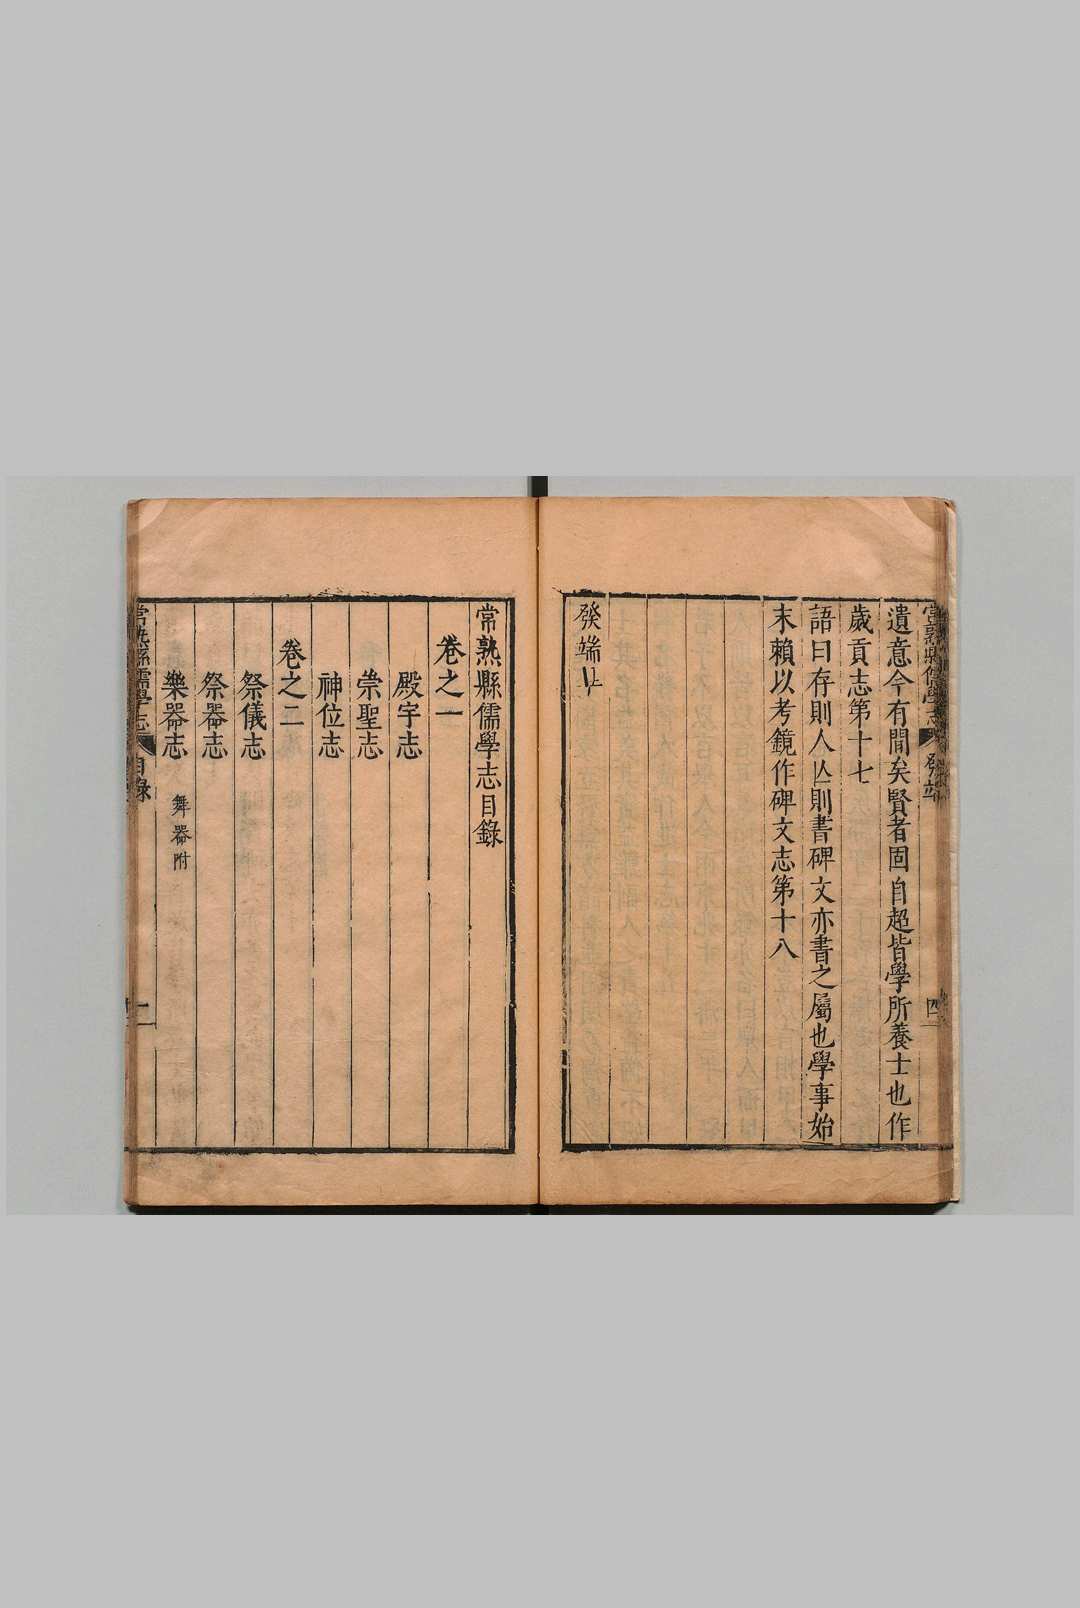 遺意今有間矣賢者固自超皆學所養士也作
歲貢志第十七
語曰存則人亾則書碑文亦書之屬也學事始
末賴以考鏡作碑文志第十八
發端止
常熟縣儒學志目錄
卷之一
殿宇志
崇聖志
神位志
卷之二
祭儀志
祭器志
樂器志 舞器附
常熟縣儒學志 目錄 二